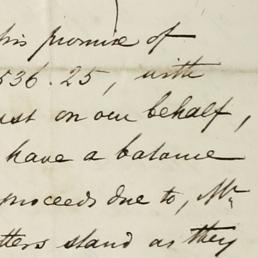 his promise of
536.25, with
ust on our behalf,
have a balance
proceeds due to, Mr
tters stand as they